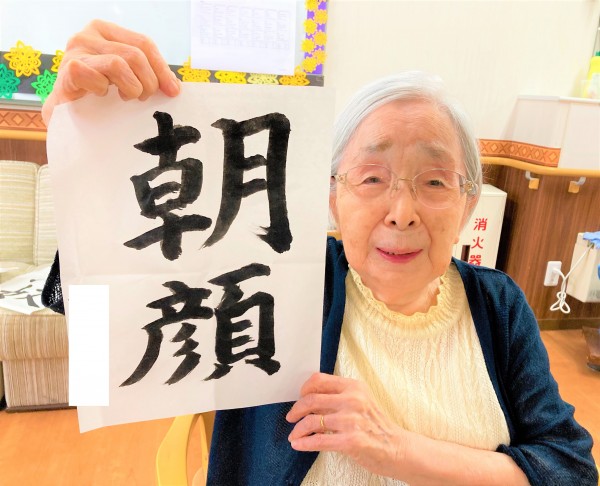 朝顔
消火器